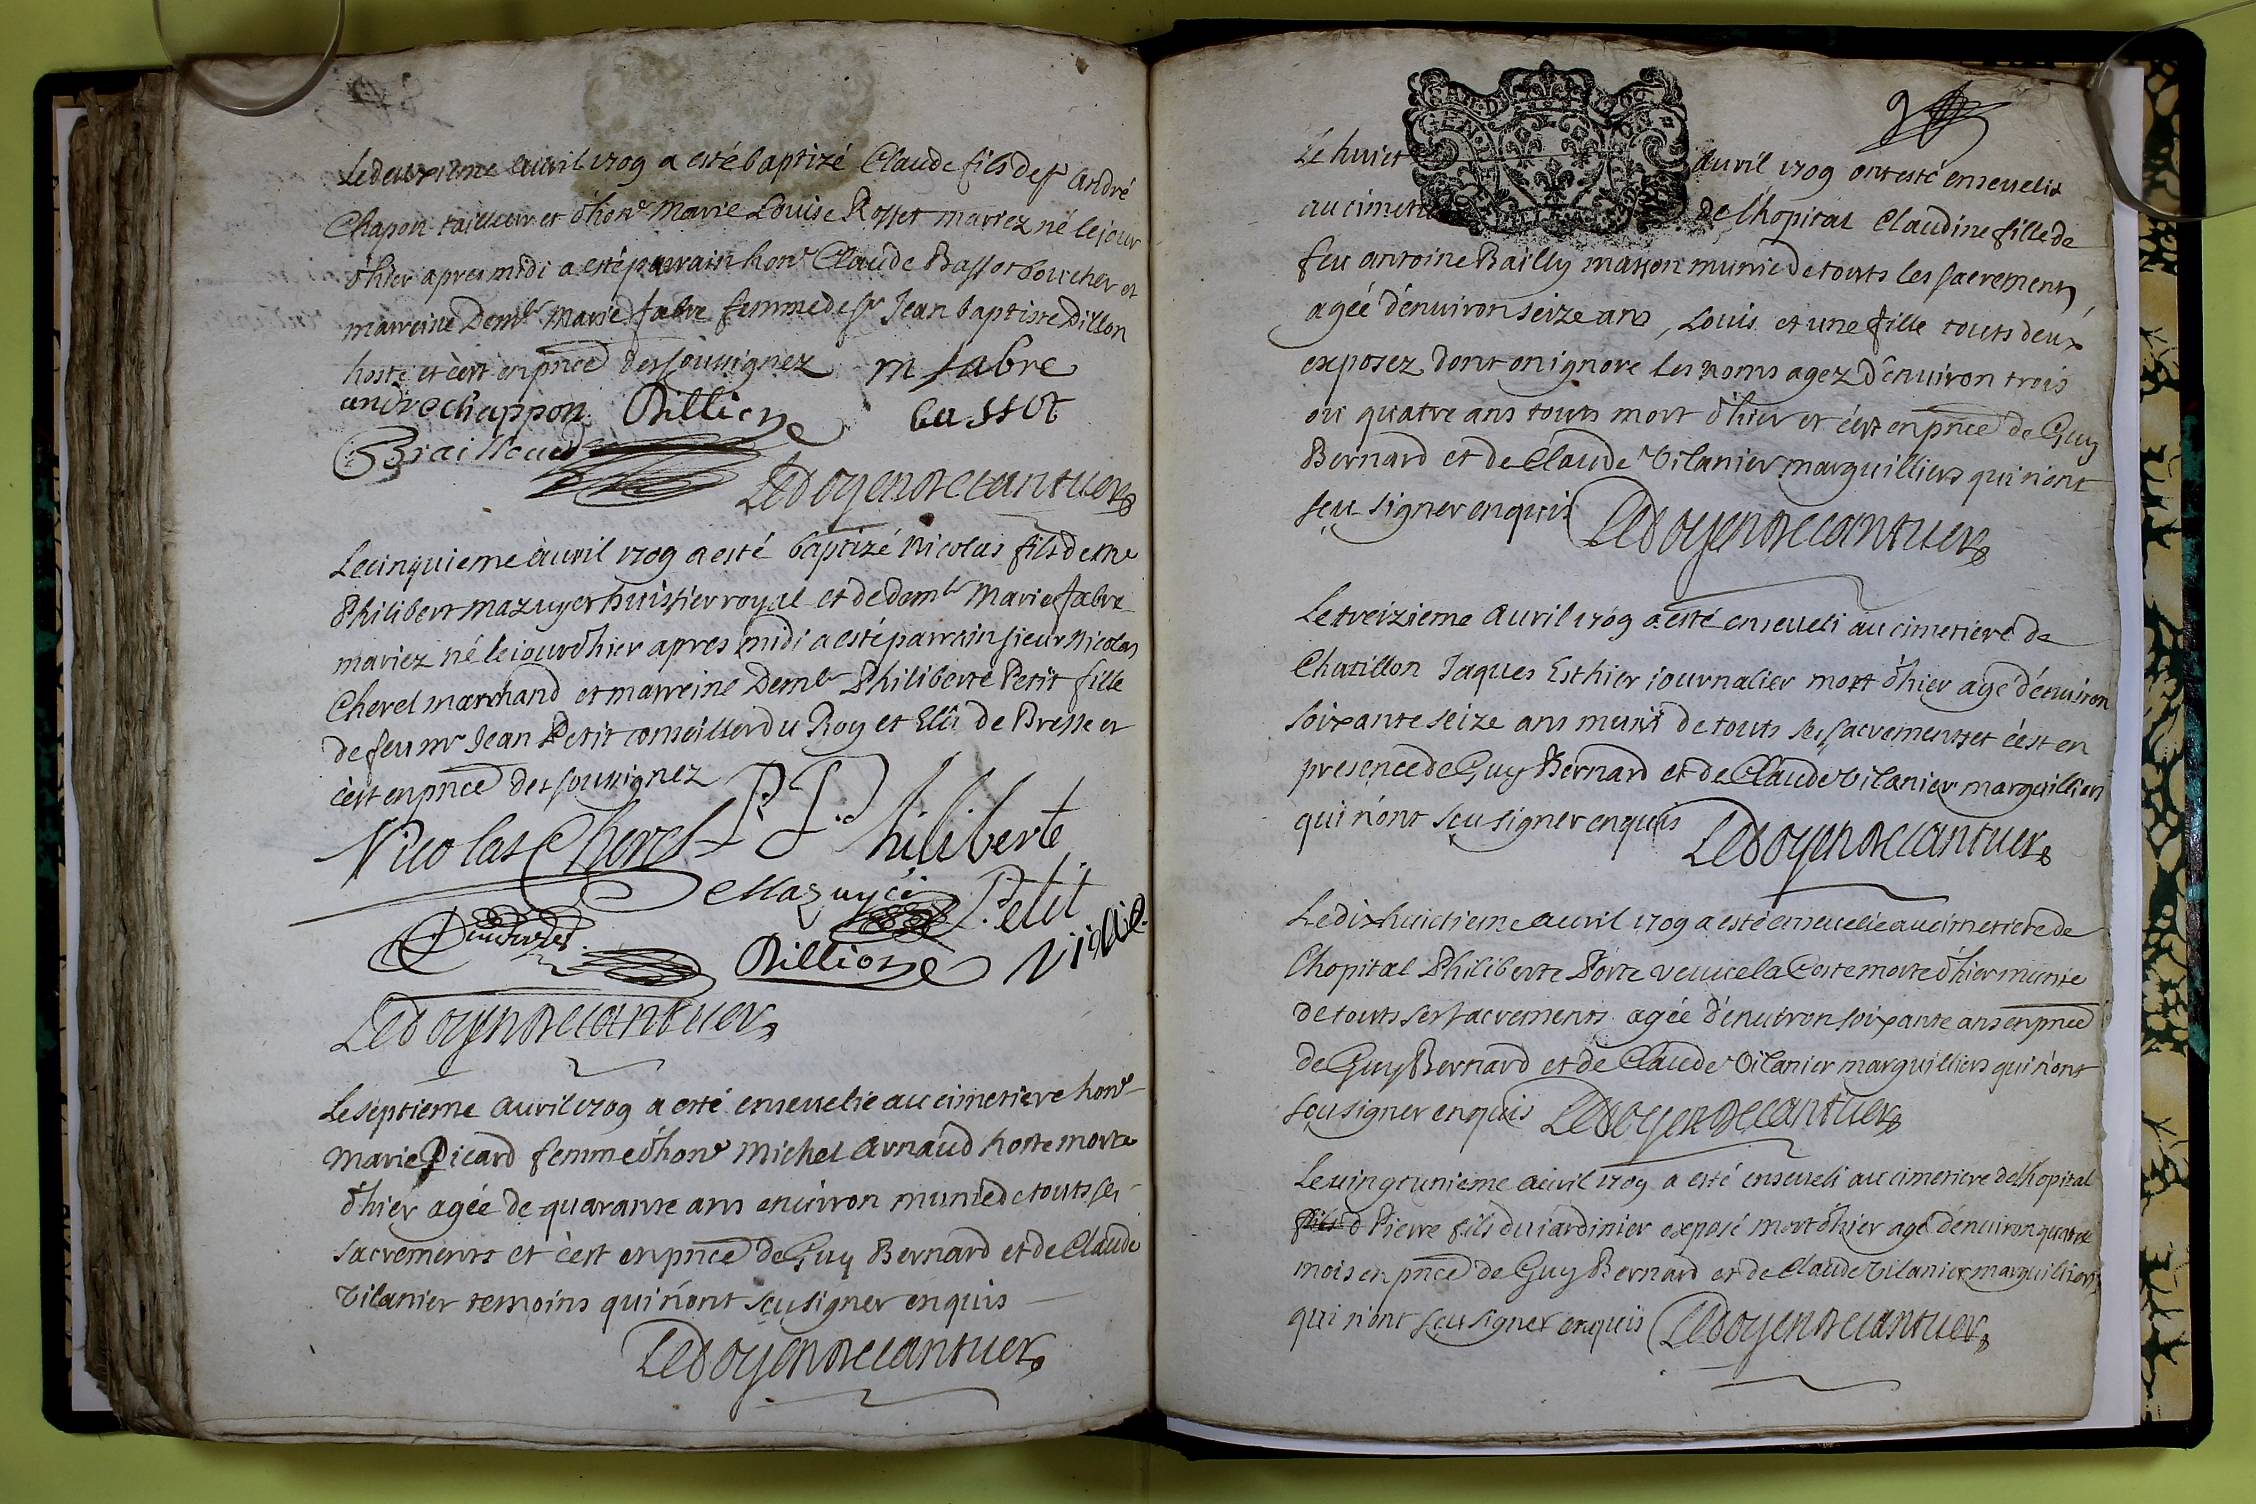 Le deuxieme auril 1709 a esté baptizé Claude fils de sr André
Chapon tailleur et d'hone Marie Louise Rosset mariez né le jour
d'hier apres midi a esté parrain hone Claude Bassot boucher et
marreine Demlle Marie fabre femme de sr Jean baptiste Dillon
hoste et c'est en pnce des soussignez m fabre
andre chappon Dillion bassot
Le doyen Decantuer
Le cinquieme auril 1709 a esté baptizé Nicolas fils de me
Philibert mazuyer huissier royal et de demlle Marie fabre
mariez né le iour d'hier apres midi a esté parrain sieur Nicolas
Cherel marchand et marreine Demlle Philiberte Petit fille
de feu mr Jean Petit conseiller du Roy et Elû de Bresse et
c'est en pnce des soussignez
Nicolas Cherel P. P. Philiberte
Mazuyer Petit
Dillion
Le doyen Decantuer
Le septieme auril 1709 a esté enseuelie au cimetiere hone
Marie Picard femme d'hone Michel Arnaud hoste morte
d'hier agée de quarante ans enuiron munie de touts ses
sacrements et c'est en pnce de Guy Bernard et de Claude
Vilanier temoins qui n'ont sçu signer enquis
Le doyen Decantuer
Le huict auril 1709 ont esté enseuelis
au cimeti de l'hopital Claudine fille de
feu antoine Bailly masson munie de touts les sacrements
agée d'enuiron seize ans, Louis et une fille touts deux
exposez dont on ignore les noms agez d'enuiron trois
ou quatre ans touts mort d'hier et c'est en pnce de Guy
Bernard et de Claude Vilanier marguilliers qui n'ont
sçu signer enquis Le doyen Decantuer
Le treizieme auril 1709 a esté enseueli au cimetiere de
Chatillon Jaques Esthier iournalier mort d'hier agé d'enuiron
soixante seize ans muni de touts ses sacrements et c'est en
presence de Guy Bernard et de Claude Vilanier marguilliers
qui n'ont sçu signer enquis Le doyen Decantuer
Le dixhuictieme auril 1709 a esté enseuelie au cimetiere de
l'hopital Philiberte Porte veuue la Coste morte d'hier munie
de touts ses sacrements agée d'enuiron soixante ans en pnce
de Guy Bernard et de Claude Vilanier marguilliers qui n'ont
sçu signer enquis Le doyen Decantuer
Le uingtunieme auril 1709 a esté enseueli au cimetiere de l'hopital
fils d Pierre fils du iardinier exposé mort d'hier agé d'enuiron quatre
mois en pnce de Guy Bernard et de Claude Vilanier marguilliers
qui n'ont sçu signer enquis Le doyen Decantuer